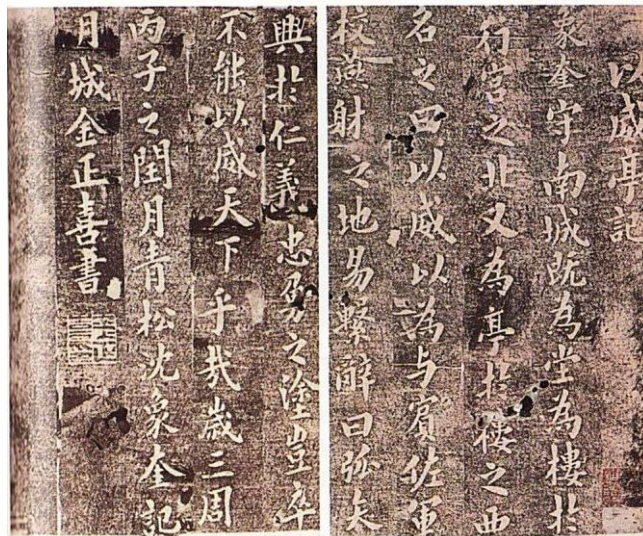 以威亭記
象奎守南城既為堂為樓於
行宮之北又為亭於樓之西
名之曰以威以為与賓佐軍
校燕射之地易繫辭曰弧矢
興於仁義忠勇之塗豈卒
不能以威天下乎哉歲三周
丙子之閏月青松沈象奎記
月城金正喜書